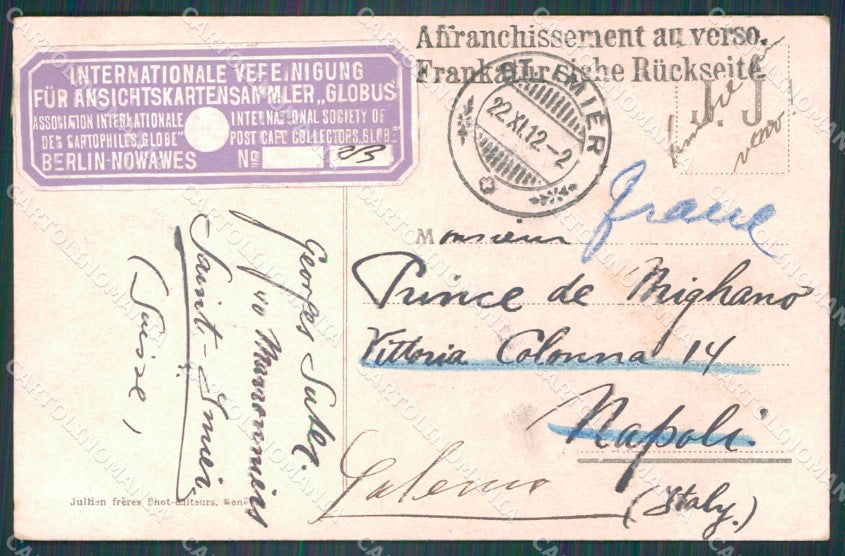 INTERNATIONALE VEREINIGUNG
FÜR ANSICHTSKARTENSAMMLER „GLOBUS"
ASSOCIATION INTERNATIONALE
DES CARTOPHILES „GLOBE"
INTERNATIONAL SOCIETY OF
POST CARD COLLECTORS „GLOBE"
BERLIN-NOWAWES No
Affranchissement au verso.
Frankatur siehe Rückseite.
ST. IMIER
22.XI.12-2
J. J
verso
Monsieur
Prince de Mighano
Vittoria Colonna 14
Napoli.
(Italy.)
Georges
40
Saint-Imier
(Suisse)
Jullien frères Phot-Editeurs, Genè
CARTOLINOMANIA